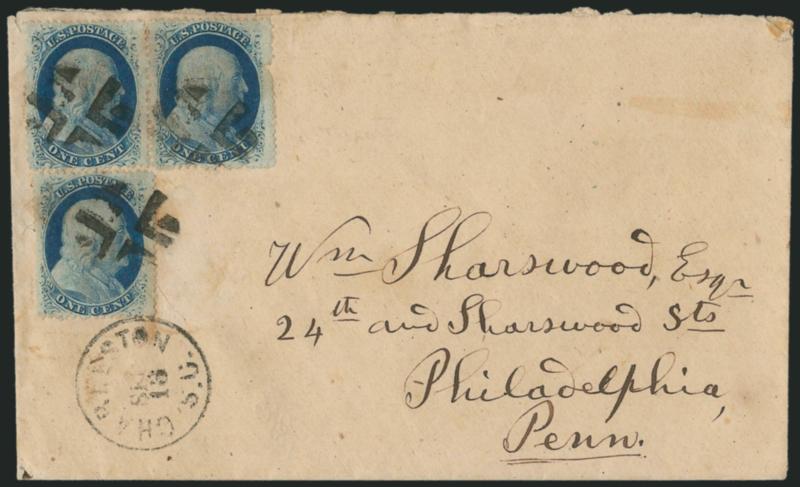 U.S. POSTAGE
ONE CENT
U.S. POSTAGE
ONE CENT
U.S. POSTAGE
ONE CENT
CHARLESTON S.C.
SEP
16
Wm Sharswood, Esqr
24th and Sharswood Sts
Philadelphia,
Penn.